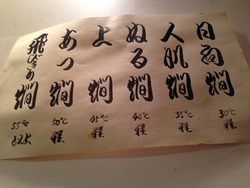 日向燗
30℃
程
人肌燗
35℃
程
ぬる燗
40℃
程
上燗
45℃
程
あつ燗
50℃
程
飛びきり燗
55℃
以上